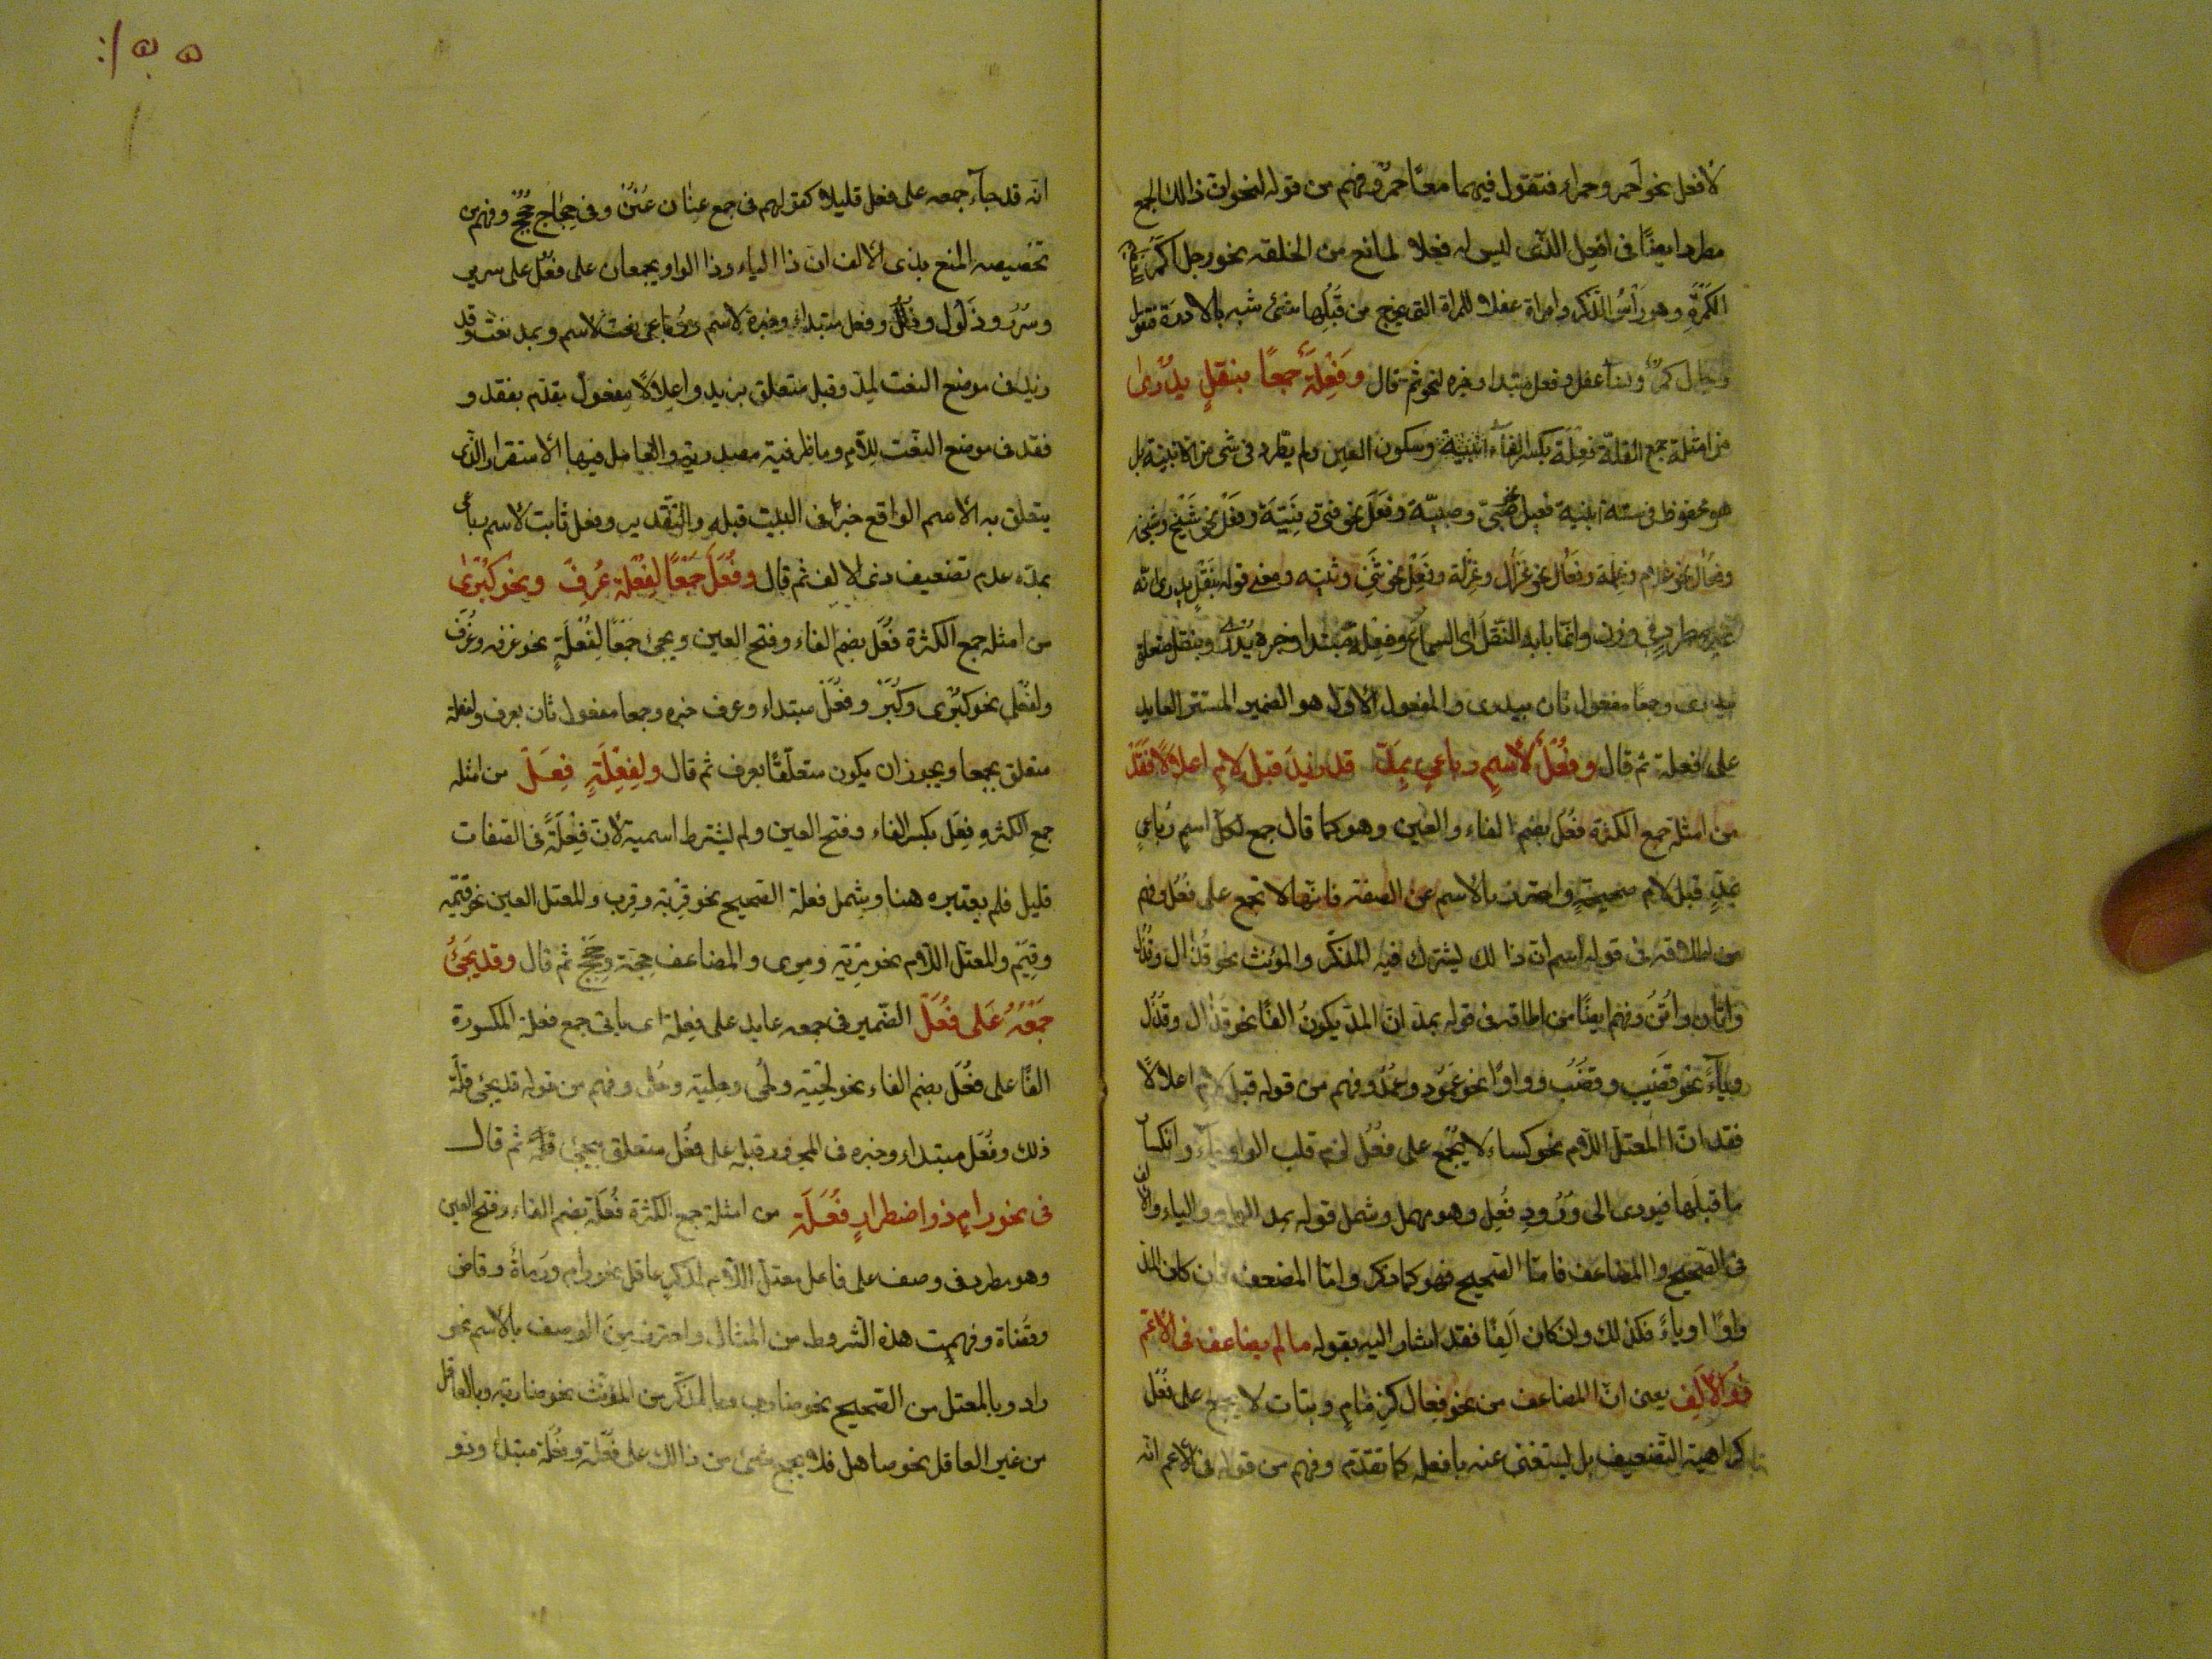 لافعل نحو احمر وحمراء فتقول فيهما معًا حمرٌ وفهم من قوله لنحو ان ذالك الجمع
مطرد ايضًا فى افعل الذى ليس له فعلا لمانع من الخلقة نحو رجل اكمر
الكمَرَة وهو رأسُ الذكر وامراة عفلا للمراة التى يخرج من قُبُلِها شئ شبه بالادرة فتقول
رجال كمرٌ ونساء عفل وفعل مبتدا وخبره لنحو ثم قال وَفِعْلَةٌ جمعًا بنقلٍ يُدْرىٰ
من امثلة جمع القلّة فِعْلَة بكسر الفاء وسكون العين ولم يطّرد فى شئ من الابنية بل
هو محفوظ فى ستة ابنية فعيل نحو صَبىّ وصبيّة وفَعَلَ نحو فتى وفِتْيَة وفَعْل نحو شَيْخ وشيخة
وفُعال نحو غلام وغلمة وفَعَال نحو غزَال وغِزْلة وفِعَل نحو ثِنًى وثنيه ومعنى قوله بنَقْلٍ يدرى انّه
غير مطرد فى وزن وانّما بابه النّقل اى السماع وفِعْلة مبتدا وخبره يُدْرى وبنقل متعلق
بيدرى وجمعًا مفعول ثان بيدرى والمفعول الاول هو الضمير المستتر العايد
على فعلة ثم قال وفُعُلٌ لأسمٍ رباعىٍ بِمَدّ قد زيدَ قبل لامٍ اعلالاً فَقَدْ
من امثلة جمع الكثرة فُعُل بضم الفاء والعين وهو كما قال جمع لكلّ اسمٍ رُباعىٍ
بمدٍّ قبل لام صحيحةٍ واحترز بالاسم عن الصفة فانّها لا تجمع على فعُل وفهم
من اطلاقه فى قوله اسم انّ ذا لك يشترك فيه المذكّر والمؤنث نحو قُذال وقُذُل
واتان واُتُنُ وفهم ايضًا من اطلاقه فى قوله بمدّ انّ المدّ يكونُ الفًا نحو قَذال وقُذُل
وياءً نحو قضيب وقضُب وواوًا نحو عَمود وعُمُد وفهم من قوله قبل لامٍ اعلالاً
فقد انّ المعتلّ اللّام نحو كساء لا يُجْمَع على فعُل لزم قلب الواو ياءً وانكسار
ما قبلَها فيودى الى وُرُودِ فُعِل وهو مهمل وشمل قوله بمد الواو والياء والالف
فى الصّحيح والمضاعف فامّا الصّحيح فهو كما ذكر وامّا المضعف فان كان المدّ
واوًا او ياءً فكذلك وان كان اَلِفًا فقد اشار اليه بقوله ما لم يضاعف فى الاعمّ
ذو الاَلِف يعنى انّ المضاعف من نحو فِعال كزمامٍ وبتات لا يجمع على فعُل
كراهية التّضعيف بل يستغنى عنه بافعله كما تقدّم وفهم من قوله فى الاعم انّه
انّه قد جآء جمعه على فعل قليلا كقولهم فى جمع عِنان عُنُنٌ وفى حِجاج حُجُج وفهم من
تخصيصه المنع بذى الالف ان ذا الياء وذا الواو يجمعان على فعُل على سرير
وسُرُر وذَلول وذُلُل وفعل مبتداء وخبره لاسم رباعى نعت لاسم وبمد نعت وقد
زيد فى موضع النعت لمدّ وقبل متعلق بزيد واعلالاً مفعول بقدّم بفقد و
فقد فى موضع النّعت للّام وما ظرفية مصدريّة والعامل فيها الاستقرار الّذى
يتعلق به الاسم الواقع خبرًا فى البيت قبله والتّقدير وفعل ثابت لاسم رباعى
بمدّه عدم تضعيف ذى الالف ثم قال وفُعَلٌ جَمْعًا لِفُعْلَة عُرِفْ ونحو كُبْرىٰ
من امثله جمع الكثرة فُعَل بضم الفاء وفتح العين ويجئ جَمْعًا لِفُعْلَةٍ نحو غرفه وغُرَف
ولفُعْلى نحو كُبْرى وكُبَر وفُعَل مبتداء وعرف خبره وجمعا مفعول ثان بعرف ولفعلة
متعلق بجمعا ويجوز ان يكون متعلّقًا بعرف ثم قال ولِفِعْلَةٍ فِعَلْ من امثله
جمع الكثره فِعَل بكسر الفاء وفتح العين ولم يشترط اسمية لانّ فِعْلَةً فى الصّفات
قليل فلم يعتبره هنا وشمل فعلة الصّحيح نحو قِرْبة وقِرب والمعتل العين نحو قيمة
وقِيَم والمعتلّ اللّام نحو مِرْية ومِرى والمضاعف حِجّة وحِجَجْ ثم قال وقد يَجِئُ
جَمْعُهُ عَلى فُعَلْ الضّمير فى جمعه عايد على فِعلة اى ياتى جمع فعلة المكسورة
الفًا على فُعَل بضم الفاء نحو لحْية ولُحى وحِلية وحُلى وفهم من قوله قد يجئ قلّة
ذلك وفُعَل مبتداء وخبره فى المجرور قبله على فُعَل متعلق بيجئ قلّة ثم قال
فى نحو رامٍ ذو اضطرارٍ فُعَلَة من امثلة جمع الكثرة فُعَلَة بضم الفاء وفتح العين
وهو مطرد فى وصف على فاعل معتلّ اللّام لمذكرٍ عاقل نحو رام ورُماةٌ وقاض
وقُضاة وفهمت هذه الشّروط من المثال واحترز من الوصف بالاسم نحو
واد وبالمعتل من الصّحيح نحو ضارب وبالمذكّر من المؤنّث نحو ضاربة وبالعاقل
من غير العاقل نحو صاهل فلا يجمع شئ من ذالك على فعَلة وفُعَلة مبتدأ وذو